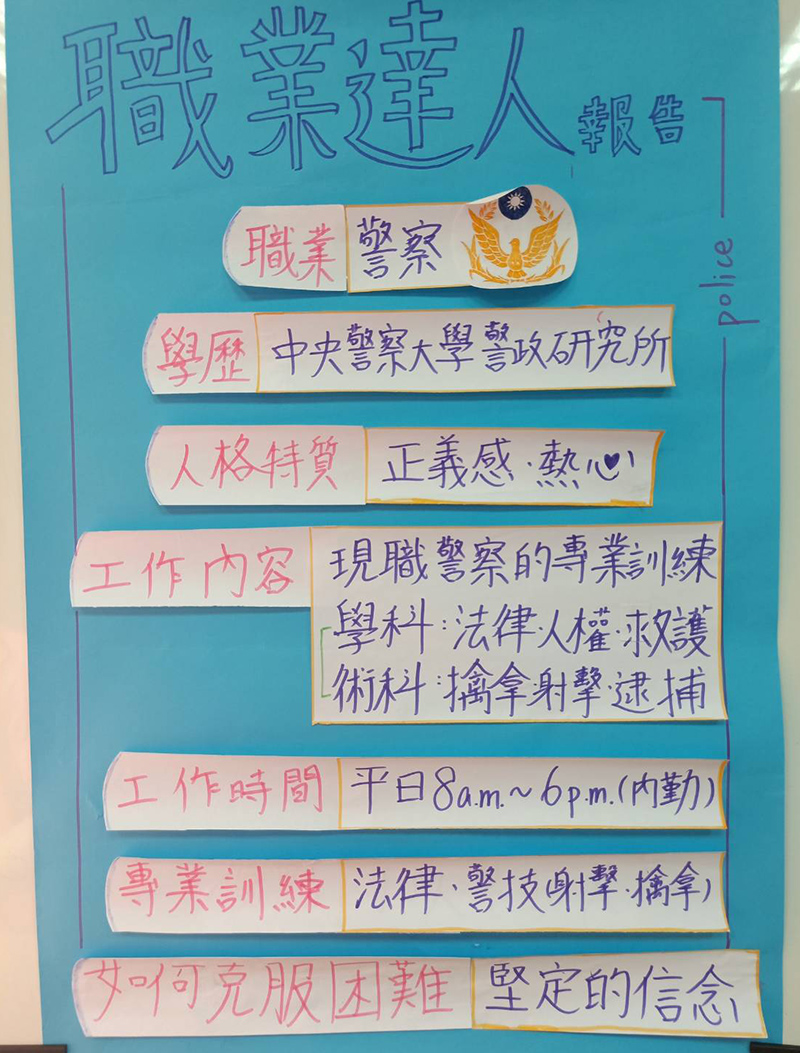 職業達人報告
police
職業 警察
學歷 中央警察大學警政研究所
人格特質 正義感·熱心
工作內容 現職警察的專業訓練
學科:法律·人權·救護
術科:擒拿·射擊·逮捕
工作時間 平日8a.m.~6p.m.(內勤)
專業訓練 法律·警技(射擊·擒拿)
如何克服困難 堅定的信念